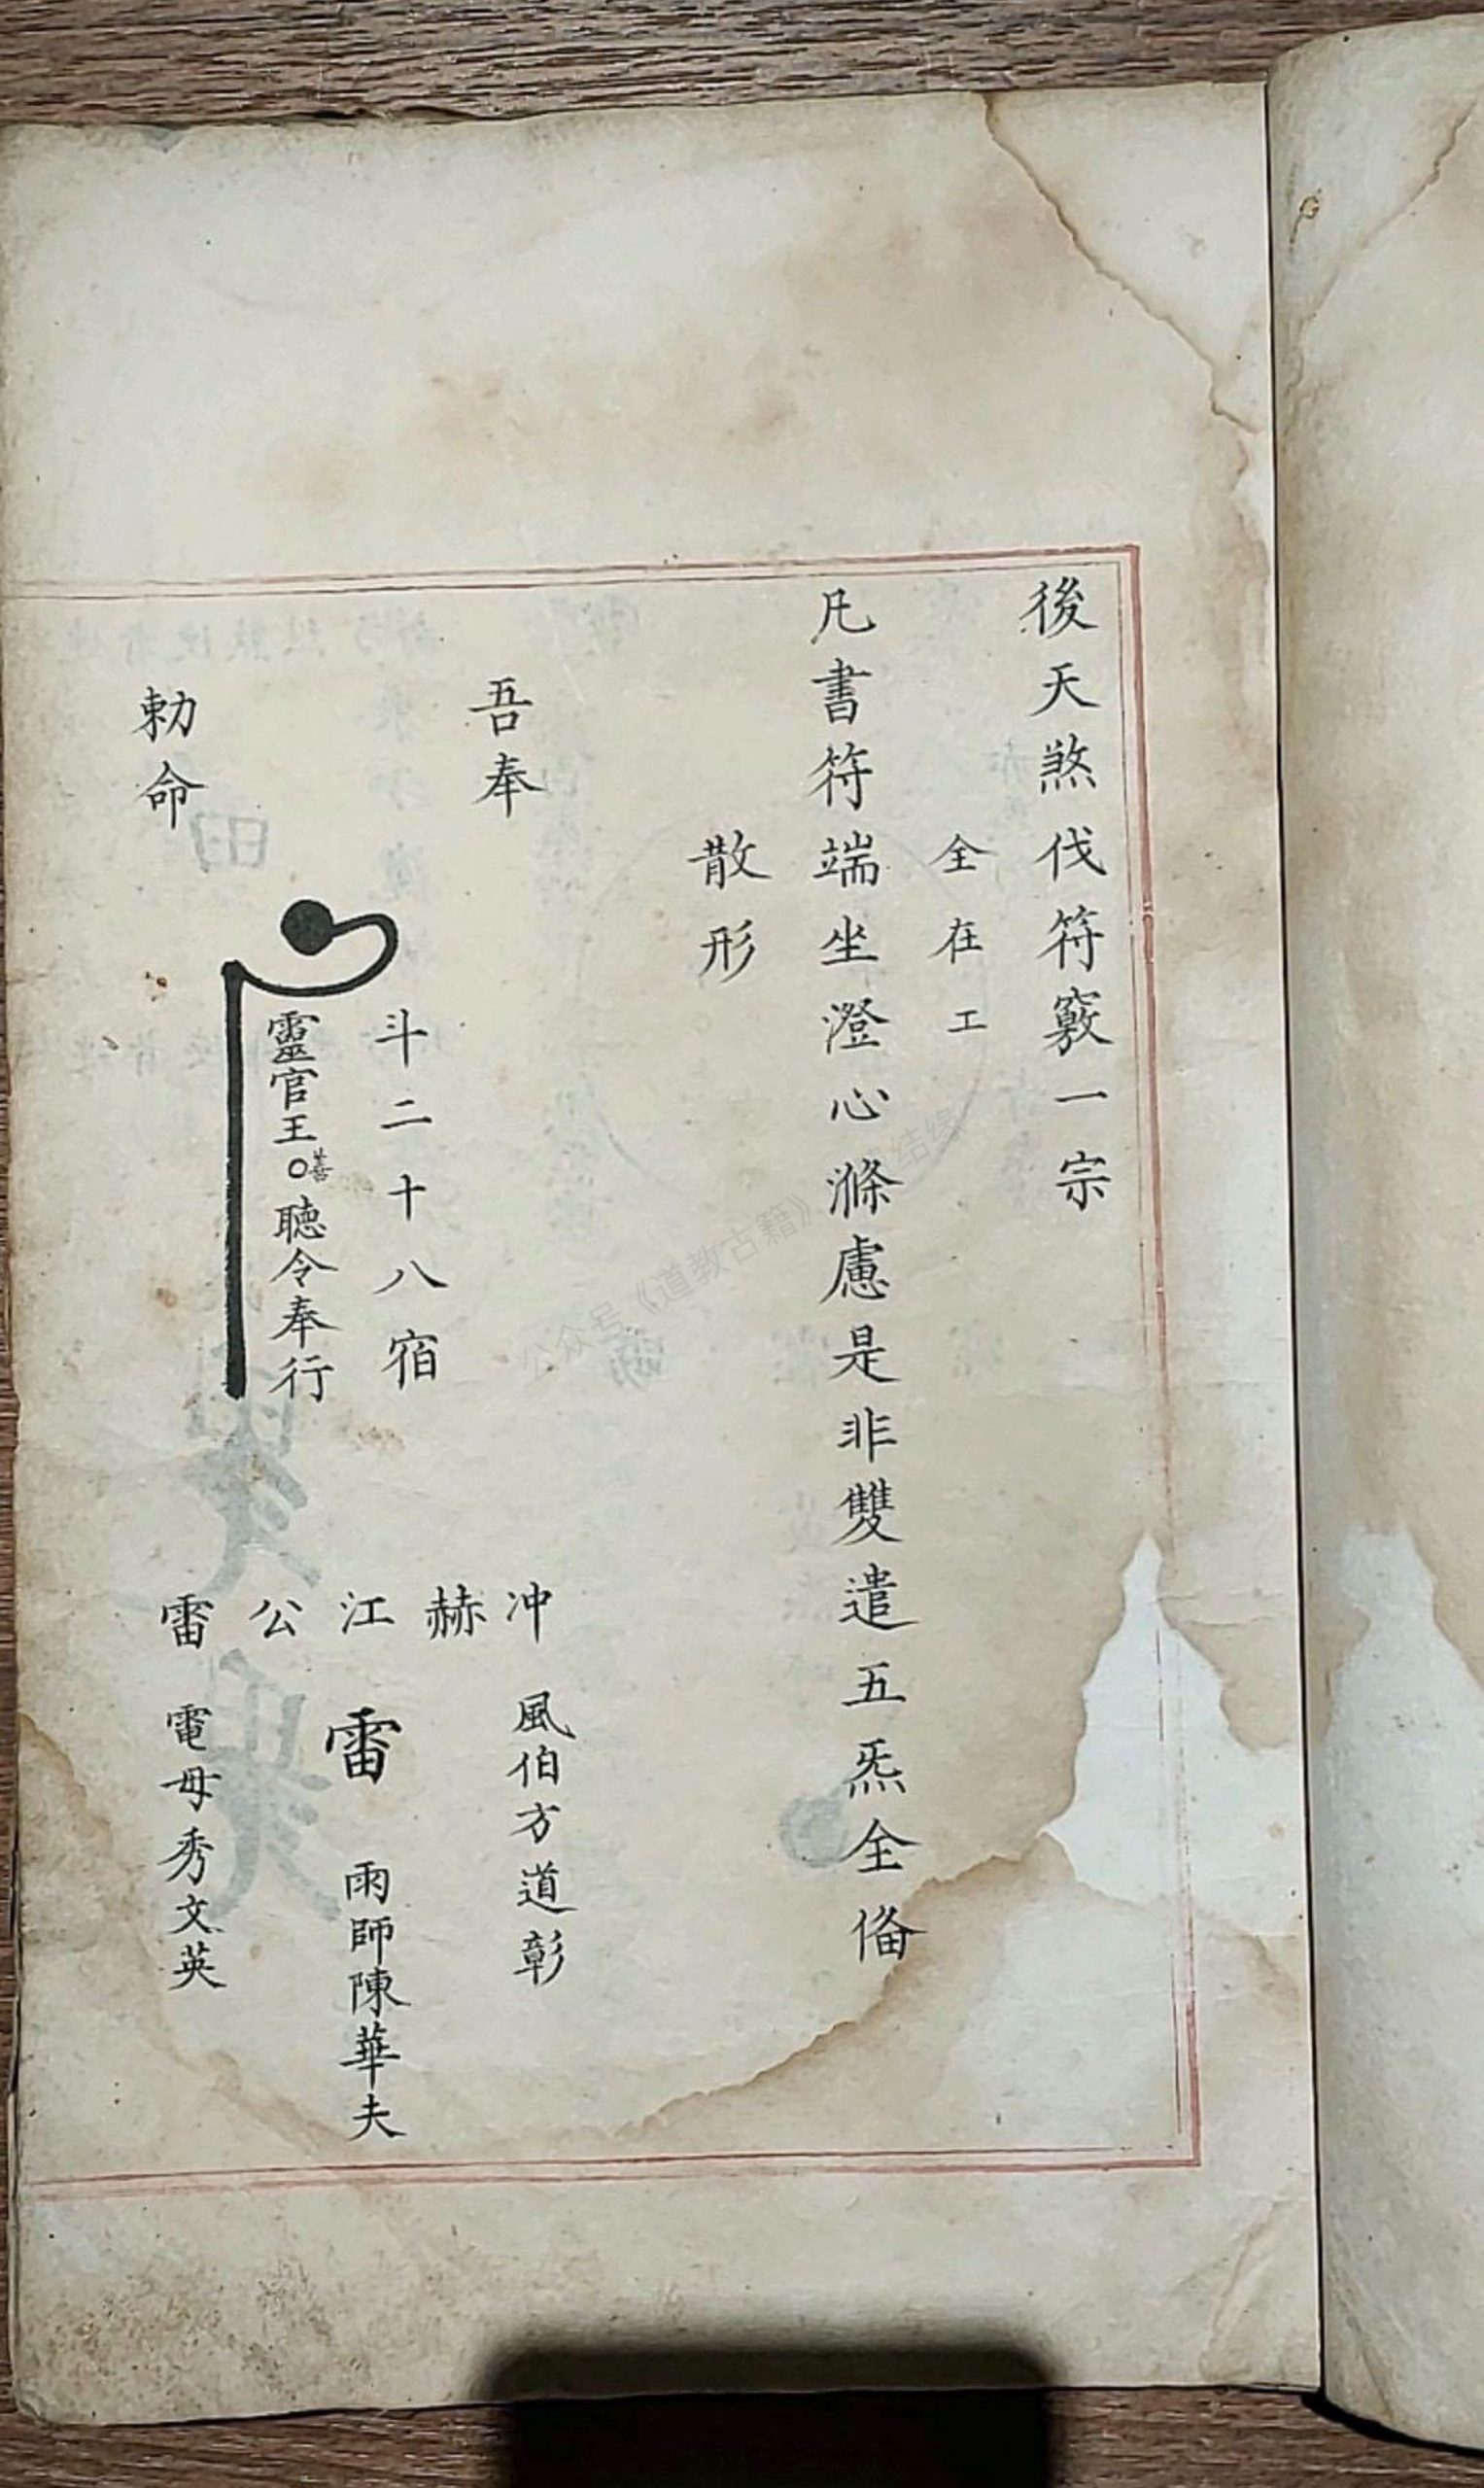 後天煞伐符竅一宗
全在工
凡書符端坐澄心滌慮是非雙遣五炁全俻
散形
吾奉
斗二十八宿
靈官王○善聴令奉行
勅命
冲赫江公雷
風伯方道彰
雷
雨師陳華夫
電母秀文英
公众号《道教古籍》结缘